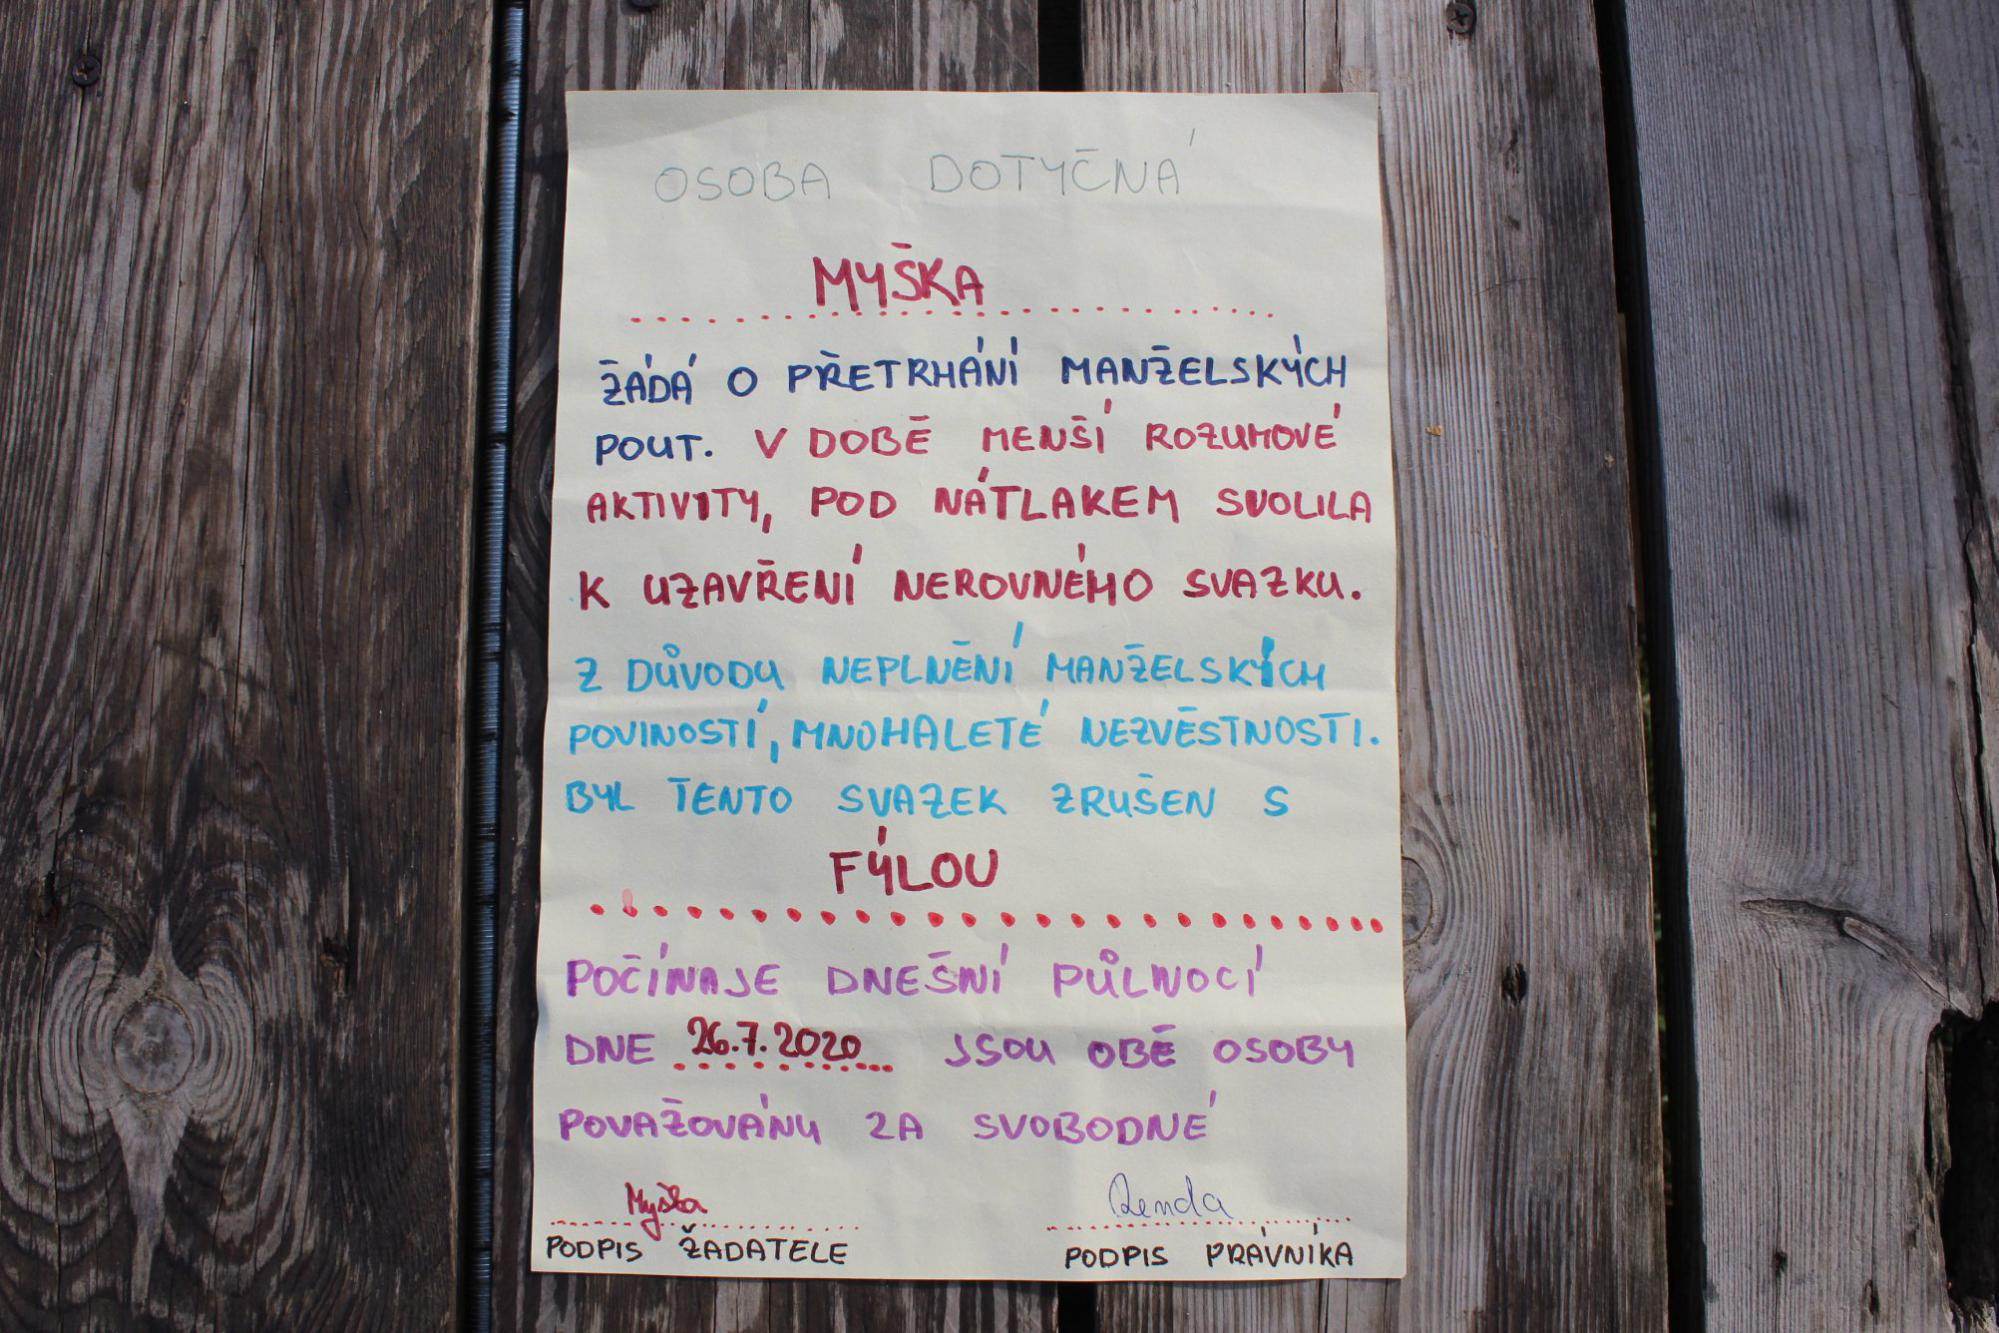 OSOBA DOTYČNÁ
MYŠKA
ŽÁDÁ O PŘETRHÁNÍ MANŽELSKÝCH
POUT. V DOBĚ MENŠÍ ROZUMOVÉ
AKTIVITY, POD NÁTLAKEM SVOLILA
K UZAVŘENÍ NEROVNÉHO SVAZKU.
Z DŮVODU NEPLNĚNÍ MANŽELSKÝCH
POVINOSTÍ, MNOHALETÉ NEZVĚSTNOSTI.
BYL TENTO SVAZEK ZRUŠEN S
FÝLOU
POČÍNAJE DNEŠNÍ PŮLNOCÍ
DNE 26.7.2020 JSOU OBĚ OSOBY
POVAŽOVÁNY ZA SVOBODNÉ
Myška Renda
PODPIS ŽADATELE PODPIS PRÁVNÍKA